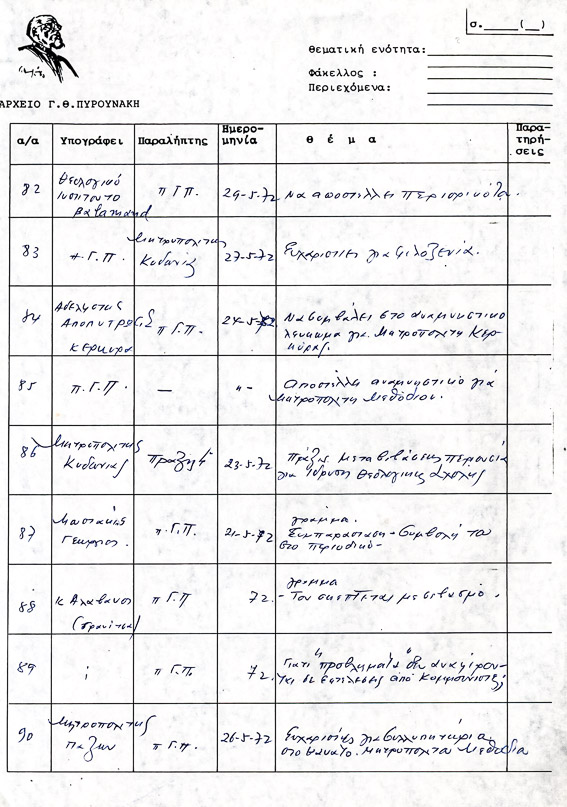 σ.____(__)
Θεματική ενότητα:
Φάκελλος :
Περιεχόμενα:
ΑΡΧΕΙΟ Γ.Θ.ΠΥΡΟΥΝΑΚΗ
α/α Υπογράφει Παραλήπτης Ημερο-μηνία Θ έ μ α Παρα-τηρή-σεις
82 Θεολογικό Ινστιτούτο Balamand π Γ Π. 29-5-72 Να αποστέλλει περιοδικό
83 π.Γ.Π. Μητροπολίτης Κυδωνίας 27-5-72 Ευχαριστίες για φιλοξενία.
84 Αδελφότης ΑΠΟΛΥΤΡΩΣΙΣ ΚΕΡΚΥΡΑ π Γ.Π. 24-5-72 Να συμβάλει στο αναμνηστικό
λεύκωμα για Μητροπολίτη Κερ-
κύρας.
85 π.Γ.Π. — " - Αποστέλλει αναμνηστικό για
Μητροπολίτη Μεθόδιο.
86 Μητροπολίτης Κυδωνίας Πράξη 23-5-72 Πράξις μεταβιβάσεως περιουσία
για ίδρυση Θεολογικής Σχολής
87 Γεώργιος. π.Γ.Π. 21-5-72 γράμμα.
Συμπαράσταση - Συμβολή του
στο περιοδικό -
88 κ Αλαβάνος π Γ.Π 72. γράμμα
- Τον σκέπτεται με σεβασμό.
89 ; π Γ.Π. 72. Γιατί "προβλήματα" δεν αναφέρον-
ται σε εκτελέσεις από Κομμουνιστές;
90 Μητροπολίτης Παξών π Γ.Π. 26-5-72 Ευχαριστίες για συλλυπητήρια
στο θάνατο Μητροπολίτη Μεθοδίου